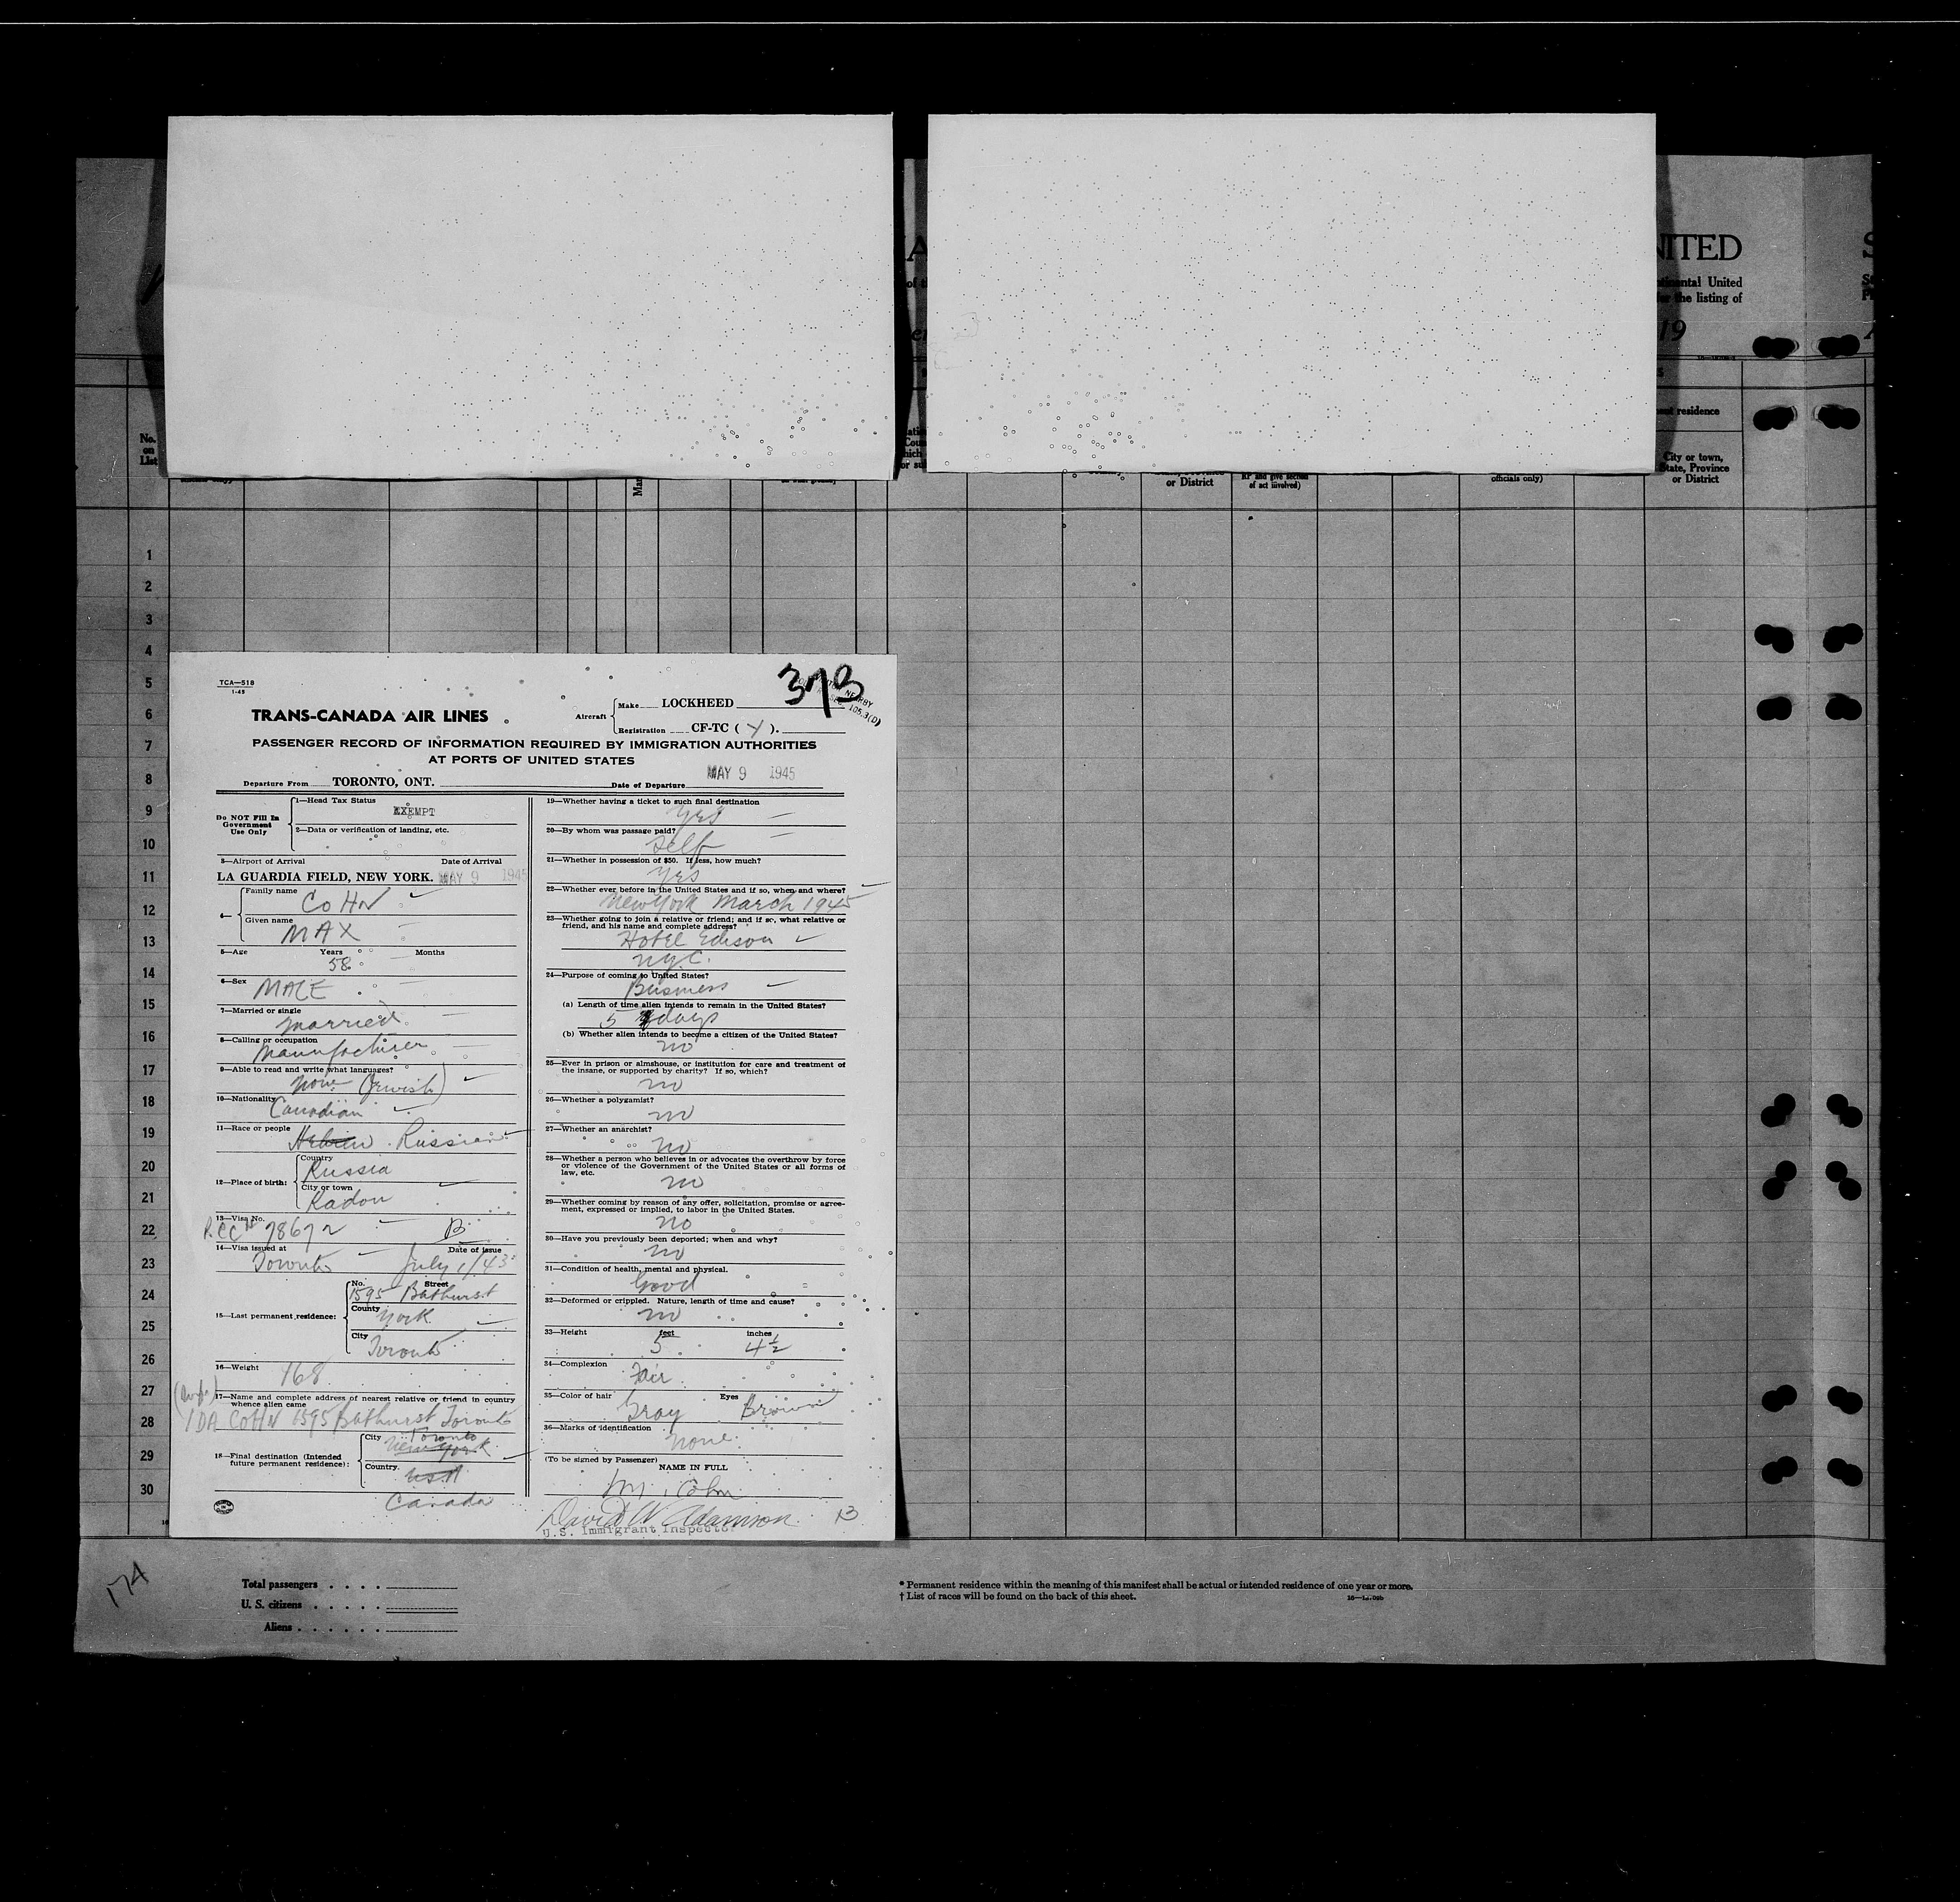 NITED
ntinental United
for the listing of
19
residence
No.
on
List
or District
RP and give section
of act involved)
officials only)
City or town,
State, Province
or District
1
2
3
4
5
6
7
8
9
10
11
12
13
14
15
16
17
18
19
20
21
22
23
24
25
26
27
28
29
30
TCA—518
1-45
373
TRANS-CANADA AIR LINES
Aircraft
Make LOCKHEED
Registration CF-TC ( Y ).
PASSENGER RECORD OF INFORMATION REQUIRED BY IMMIGRATION AUTHORITIES
AT PORTS OF UNITED STATES
Departure From TORONTO, ONT. Date of Departure MAY 9 1945
Do NOT Fill In
Government
Use Only
1—Head Tax Status EXEMPT
2—Data or verification of landing, etc.
3—Airport of Arrival Date of Arrival
LA GUARDIA FIELD, NEW YORK. MAY 9 1945
4—
Family name
COHN
Given name
MAX
5—Age Years Months
58
6—Sex
MALE
7—Married or single
married
8—Calling or occupation
Manufacturer
9—Able to read and write what languages?
None (Jewish)
10—Nationality
Canadian
11—Race or people
Hebrew Russian
12—Place of birth:
Country
Russia
City or town
Radon
13—Visa No.
78672 B
14—Visa issued at Date of issue
Toronto July 1/43
15—Last permanent residence:
No. Street
1595 Bathurst
County
York
City
Toronto
16—Weight
168
17—Name and complete address of nearest relative or friend in country
whence alien came
IDA COHN 1595 Bathurst Toronto
18—Final destination (Intended
future permanent residence):
City Toronto
New York
Country.
USA
Canada
19—Whether having a ticket to such final destination
yes
20—By whom was passage paid?
Self
21—Whether in possession of $50. If less, how much?
yes
22—Whether ever before in the United States and if so, when and where?
New York March 1945
23—Whether going to join a relative or friend; and if so, what relative or
friend, and his name and complete address?
Hotel Edison
N.Y.C.
24—Purpose of coming to United States?
Business
(a) Length of time alien intends to remain in the United States?
5 days
(b) Whether alien intends to become a citizen of the United States?
no
25—Ever in prison or almshouse, or institution for care and treatment of
the insane, or supported by charity? If so, which?
no
26—Whether a polygamist?
no
27—Whether an anarchist?
no
28—Whether a person who believes in or advocates the overthrow by force
or violence of the Government of the United States or all forms of
law, etc.
no
29—Whether coming by reason of any offer, solicitation, promise or agree-
ment, expressed or implied, to labor in the United States.
no
30—Have you previously been deported; when and why?
no
31—Condition of health, mental and physical.
Good
32—Deformed or crippled. Nature, length of time and cause?
no
33—Height feet inches
5 4½
34—Complexion
Fair
35—Color of hair Eyes
Gray Brown
36—Marks of identification
none
(To be signed by Passenger)
NAME IN FULL
M. Cohn
David W Adamson 13
U.S. Immigrant Inspector
174
Total passengers . . . .
U. S. citizens . . . . .
Aliens . . . . . .
* Permanent residence within the meaning of this manifest shall be actual or intended residence of one year or more.
† List of races will be found on the back of this sheet.